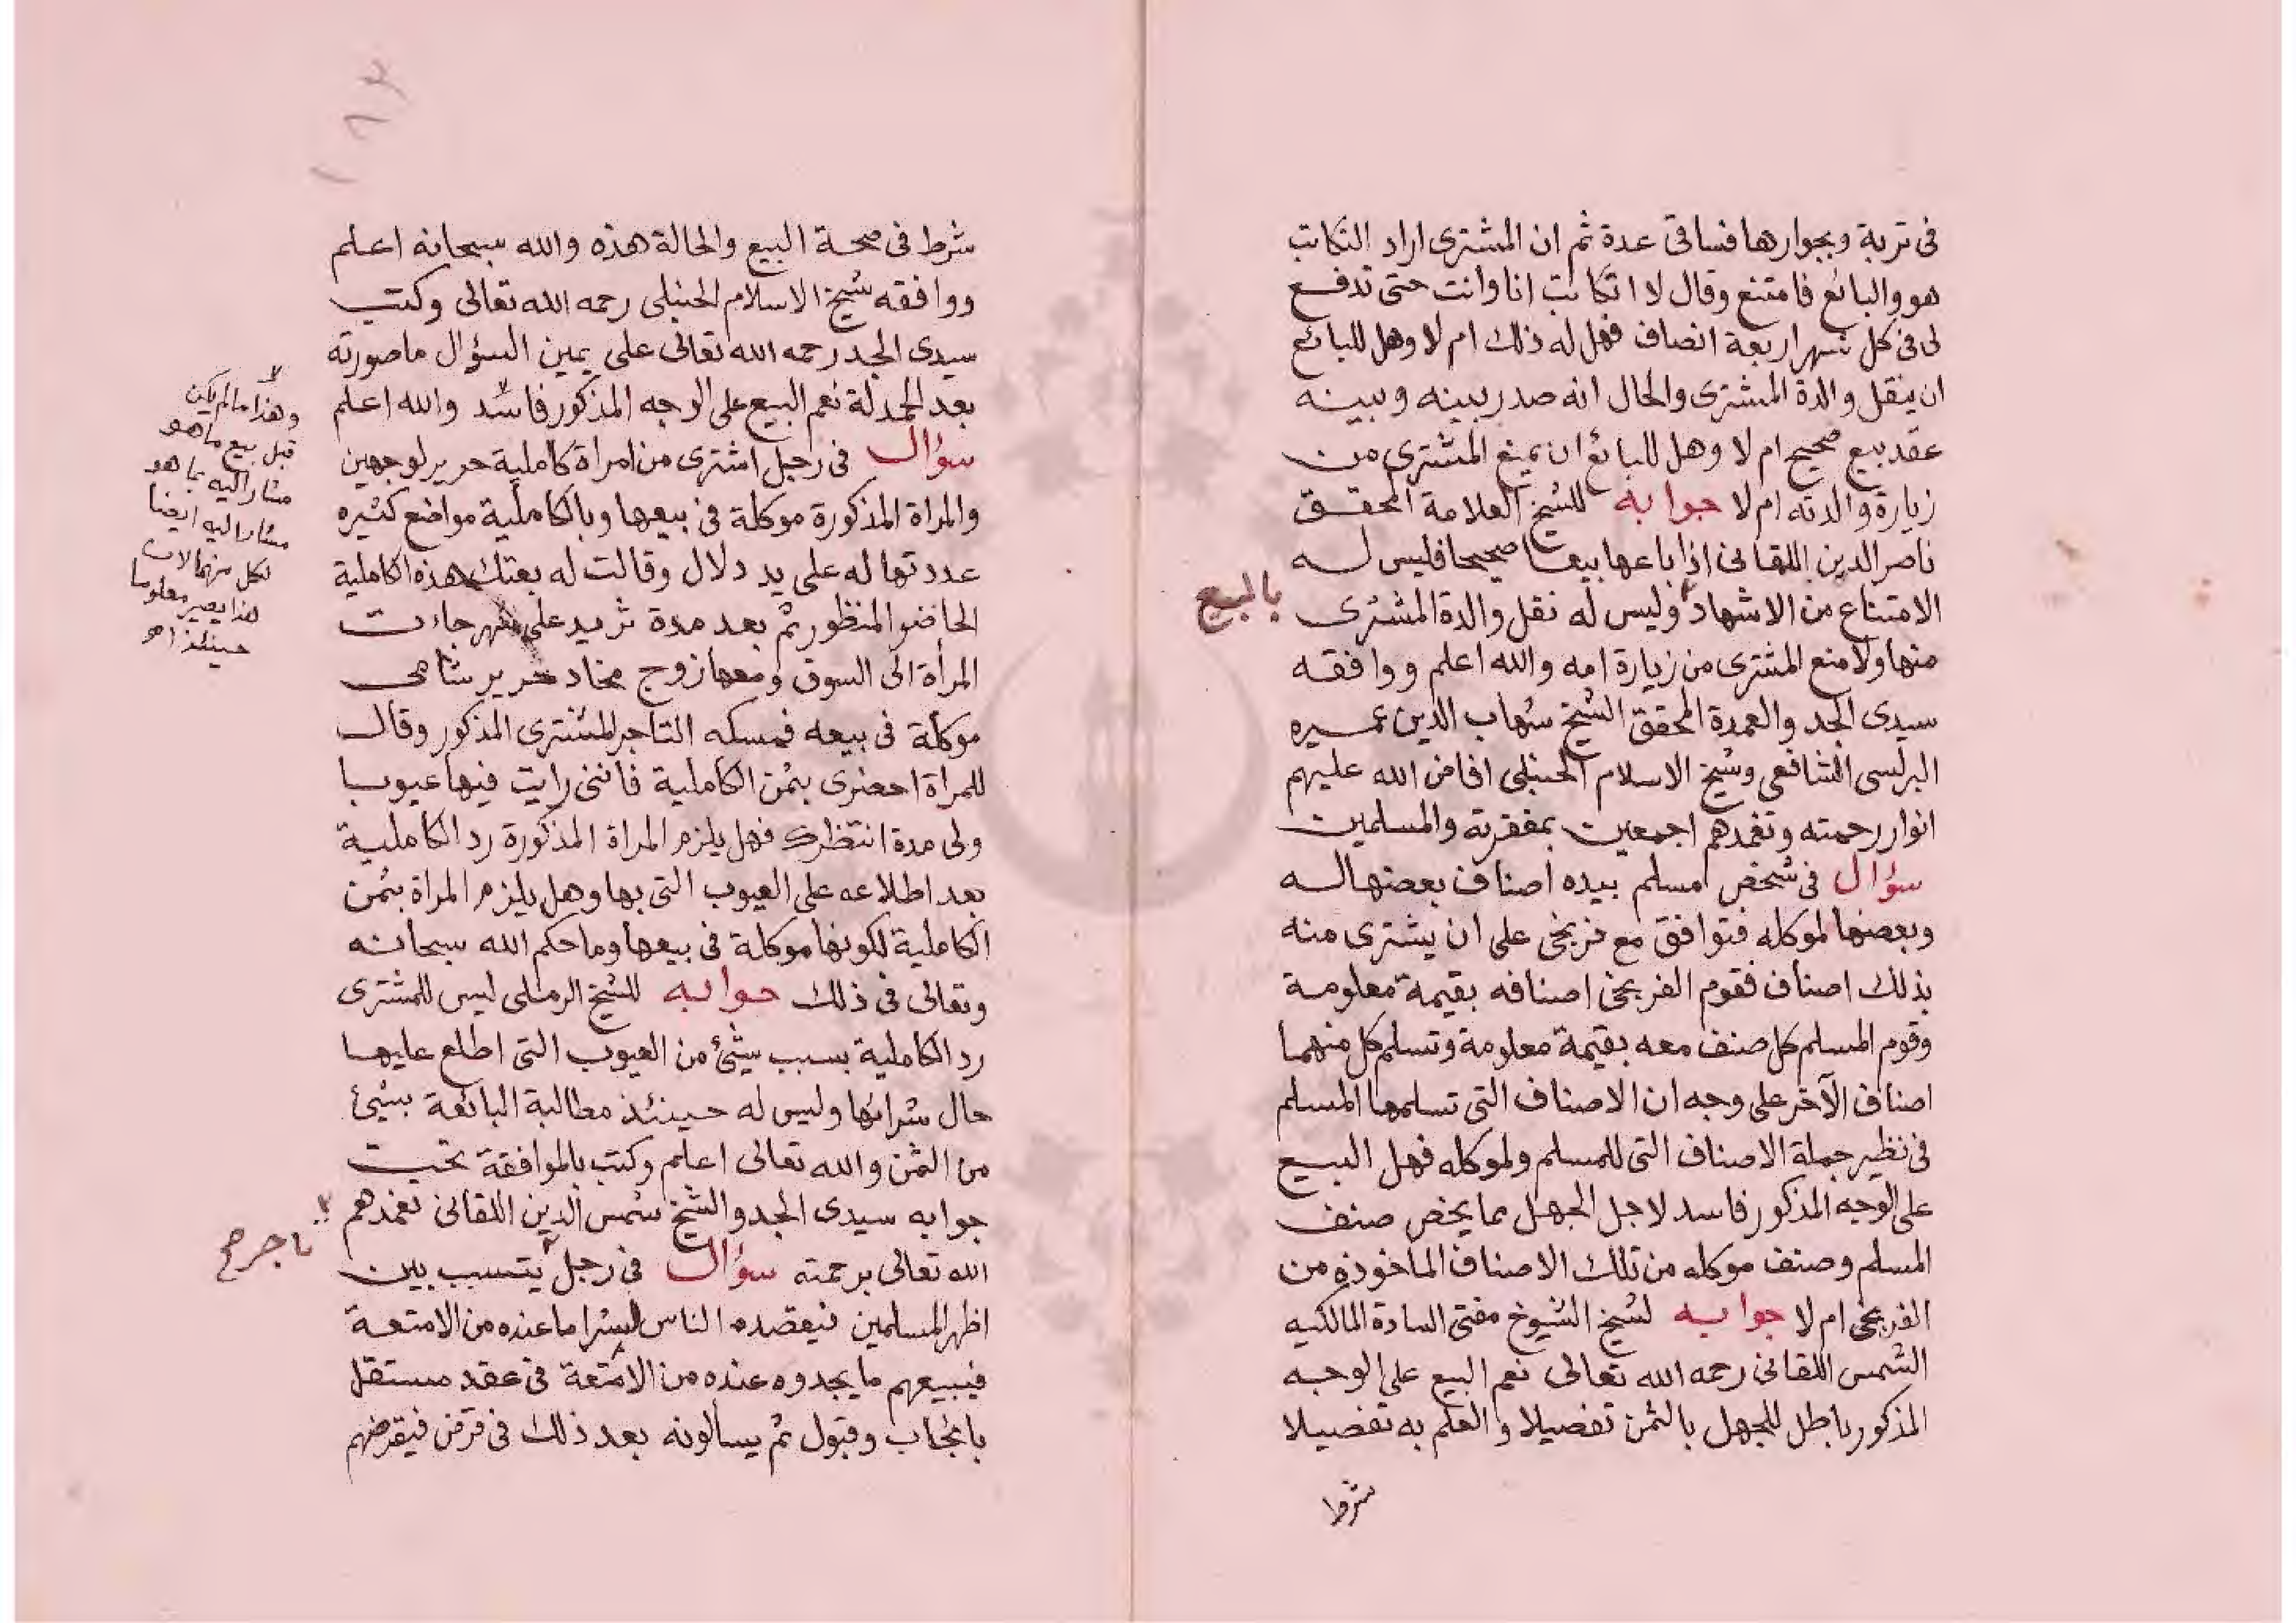 في تربة وبجوارها فساقى عدة ثم ان المشترى اراد التكاتب
هو والبائع فامتنع وقال لا اتكاتب انا وانت حتى تدفع
لى فى كل شهر اربعة انصاف فهل له ذلك ام لا وهل للبائع
ان ينقل والدة المشترى والحال انه صدر بينه وبينه
عقد بيع صحيح ام لا وهل للبائع ان يمنع المشترى من
زيارة والدته ام لا جوابه للشيخ العلامة المحقق
ناصر الدين اللقانى اذا باعها بيعا صحيحا فليس له
الامتناع من الاشهاد وليس له نقل والدة المشترى
بالبيع
منها ولا منع المشترى من زيارة امه والله اعلم ووافقه
سيدى الجد والعمدة المحقق الشيخ شهاب الدين عميره
البرلسى الشافعى وشيخ الاسلام الحنبلى افاض الله عليهم
انوار رحمته وتغمدهم اجمعين بمغفرته والمسلمين
سؤال فى شخص مسلم بيده اصناف بعضها له
وبعضها لموكله فتوافق مع فرنجى على ان يشترى منه
بذلك اصناف فقوم الفرنجى اصنافه بقيمة معلومة
وقوم المسلم كل صنف معه بقيمة معلومة وتسلم كل منهما
اصناف الآخر على وجه ان الاصناف التى تسلمها المسلم
فى نظير جملة الاصناف التى للمسلم ولموكله فهل البيع
على الوجه المذكور فاسد لاجل الجهل بما يخص صنف
المسلم وصنف موكله من تلك الاصناف الماخوذة من
الفرنجى ام لا جوابه لشيخ الشيوخ مفتى السادة المالكيه
الشمس اللقانى رحمه الله تعالى نعم البيع على الوجه
المذكور باطل للجهل بالثمن تفصيلا والعلم به تفصيلا
شرط
١٦٣
شرط فى صحة البيع والحالة هذه والله سبحانه اعلم
ووافقه شيخ الاسلام الحنبلى رحمه الله تعالى وكتب
سيدى الجد رحمه الله تعالى على يمين السؤال ما صورته
بعد الحمدلة نعم البيع على الوجه المذكور فاسد والله اعلم
وهذا ما لم يكن
قبل بيع ما هو
مشار اليه بما هو
مشار اليه ايضا
لكل منهما لان
هذا يصير معلوما
حينئذ اه
سؤال فى رجل اشترى من امراة كاملية حرير لوجهين
والمراة المذكورة موكلة فى بيعها وبالكاملية مواضع كثيره
عددتها له على يد دلال وقالت له بعتك هذه الكاملية
الحاضر المنظور ثم بعد مدة تزيد على شهر جاءت
المرأة الى السوق ومعها زوج مخاد حرير شاهى
موكلة فى بيعه فمسكه التاجر المشترى المذكور وقال
للمراة احضرى بثمن الكاملية فاننى رايت فيها عيوبا
ولى مدة انتظرك فهل يلزم المراة المذكورة رد الكاملية
بعد اطلاعه على العيوب التى بها وهل يلزم المراة بثمن
الكاملية لكونها موكلة فى بيعها وما حكم الله سبحانه
وتعالى فى ذلك جوابه للشيخ الرملى ليس للمشترى
رد الكاملية بسبب شئ من العيوب التى اطلع عليها
حال شرائها وليس له حينئذ مطالبة البائعة بشئ
من الثمن والله تعالى اعلم وكتب بالموافقة تحت
جوابه سيدى الجد والشيخ شمس الدين اللقانى تغمدهم
الله تعالى برحمته سؤال فى رجل يتسبب بين
تاجر صح
اظهر المسلمين فيقصده الناس لشرا ما عنده من الامتعة
فيبيعهم ما يجدوه عنده من الامتعة فى عقد مستقل
بايجاب وقبول ثم يسألونه بعد ذلك فى قرض فيقرضهم